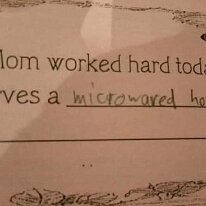 Mom worked hard toda
rves a microwaved ho